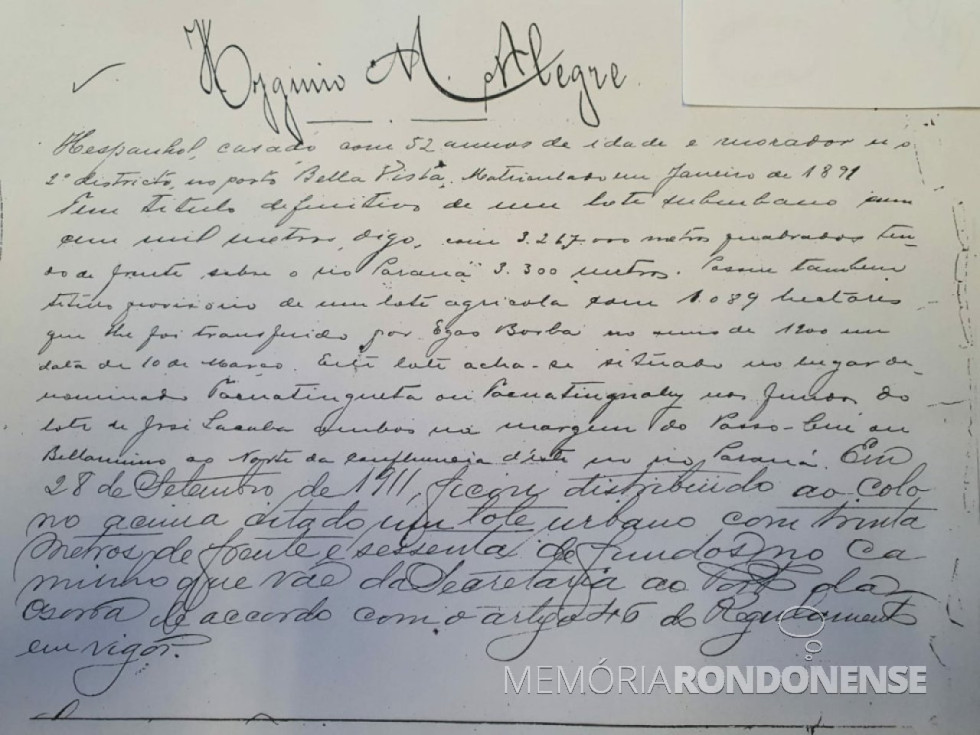 Hygino M. Alegre
Hespanhol, casado com 52 annos de idade e morador no
2º districto, no porto Bella Vista. Matriculado em Janeiro de 1891
Tem titulo definitivo de um lote suburbano com
cem mil metros, digo, com 3.267.000 metros quadrados ten-
do de frente sobre o rio Paraná 3.300 metros. Possue tambem
titulo provisorio de um lote agricola com 1.089 hectares
que lhe foi transferido por Borba no mez de 1900 em
data de 10 de Março. Este lote acha-se situado no lugar de-
nominado ou nos fundos do
lote de José ambos na margem do ou
Bellarmino ao Norte da confluencia d'este no rio Paraná. Em
28 de Setembro de 1911, ficou distribuido ao colo-
no acima citado um lote urbano com trinta
metros de frente e sessenta de fundos no Ca-
minho que vae da Secretaria ao Porto
de accordo com o artigo 46 do Regulamento
em vigôr.
MEMÓRIARONDONENSE